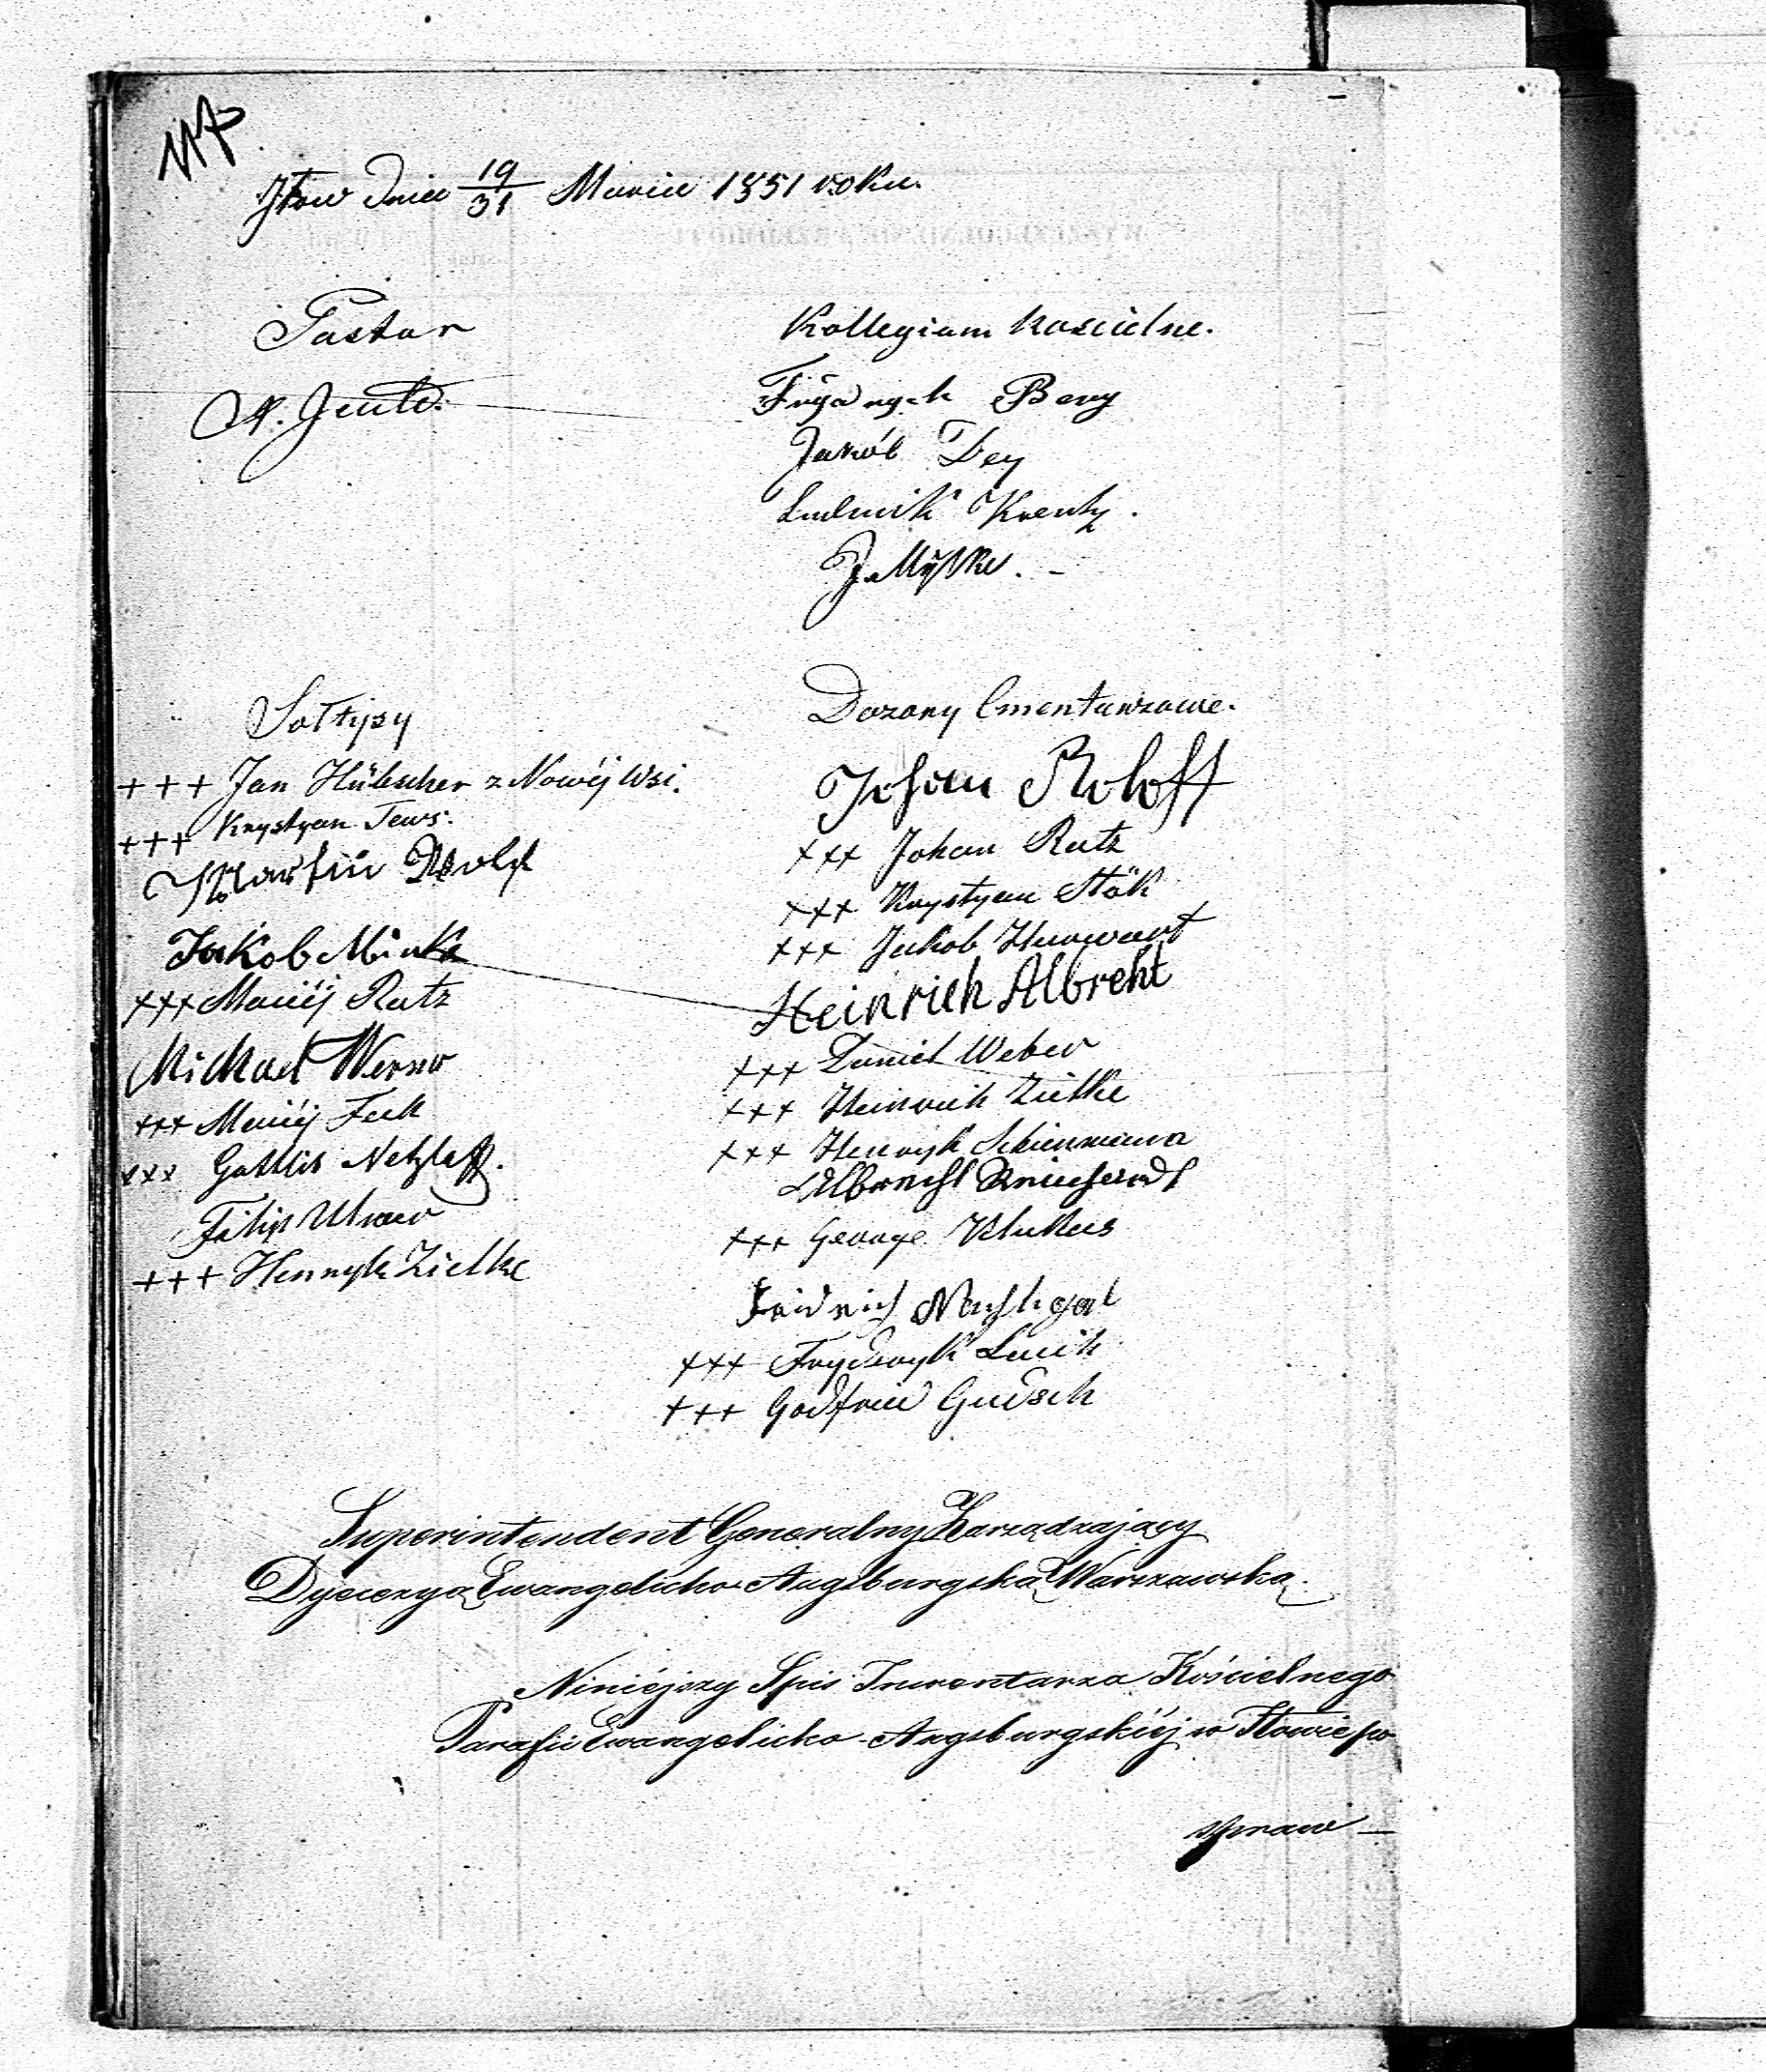 Iłow dnia 19/31 Marca 1851 roku.
Pastor
Kollegium Koscielne.
Frÿdrych Berg
Jakób Dey
Ludwik Krentz.
J. Mÿtke. -
Sołtysy
+++ Jan Hübscher z Nowéj Wsi.
+++ Krystyan Tews.
Martin Wolf
Jakob Minke
+++ Maciéj Ratz
Michael Werner
+++ Maciéj Feek
+++ Gottlib Netzlaff.
Filip Ulmer
+++ Henryk Zielke
Dozory Cmentarzowe.
Johan Roloff
+++ Johan Ratz
+++ Krystyan Stök
+++ Jakob Harwart
Heinrich Albreht
+++ Daniel Weber
+++ Heinrich Zielke
+++ Henryk Schienmann
Albrecht
+++ George Klukas
Fridrich Nachtigal
+++ Frydryk
+++ Godfried Gudsch
Superintendent Generalny Zarządzający
Dyecezyą Ewangelicko Augsburgską Warszawską.
Niniéjszy Spis Inwentarza Kościelnego
Parafii Ewangelicko-Augsburgskiéj w Iłowie, w
sprawe -